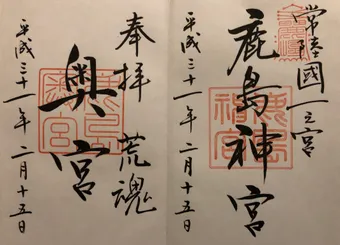 常陸國一之宮
鹿島神宮
平成三十一年二月十五日
奉拝 荒魂
奥宮
平成三十一年二月十五日